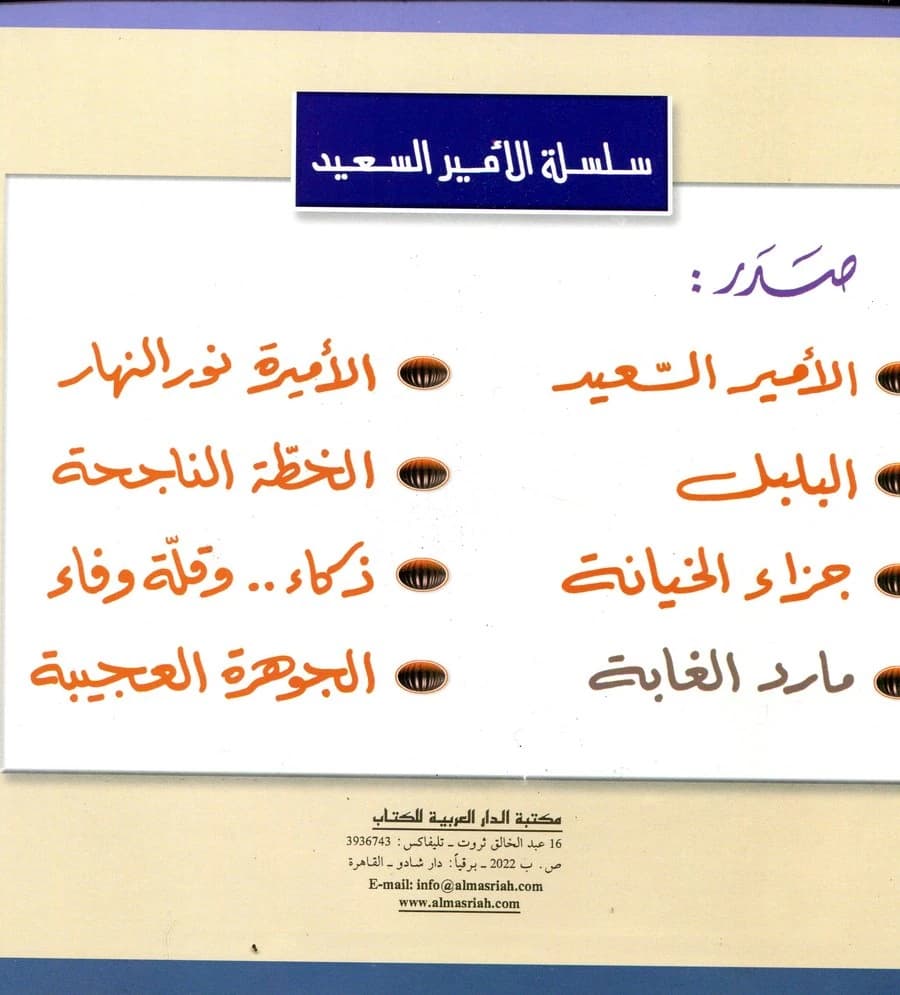 سلسلة الأمير السعيد
صَدَر :
الأمير السّعيد
البلبل
جزاء الخيانة
مارد الغابة
الأميرة نور النهار
الخطّة الناجحة
ذكاء .. وقلّة وفاء
الجوهرة العجيبة
مكتبة الدار العربية للكتاب
16 عبد الخالق ثروت ـ تليفاكس : 3936743
ص . ب 2022 ـ برقياً : دار شادو ـ القاهرة
E-mail: info@almasriah.com
www.almasriah.com